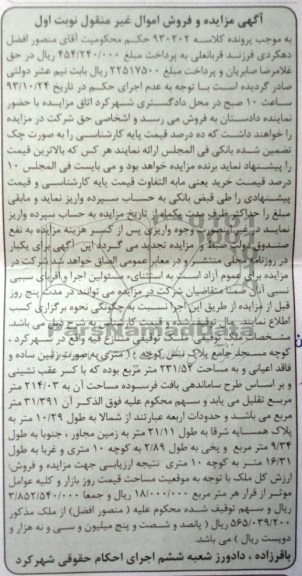 آگهی مزایده و فروش اموال غیر منقول نوبت اول
به موجب پرونده کلاسه ۹۳۰۲۰۲ حکم محکومیت آقای منصور افضل
دهکردی فرزند قربانعلی به پرداخت مبلغ ۴۵۴/۲۴۰/۰۰۰ ریال در حق
غلامرضا صابریان و پرداخت مبلغ ۲۲۵۱۷۵۰۰ ریال بابت نیم عشر دولتی
صادر گردیده است با توجه به عدم اجرای حکم در تاریخ ۹۳/۱۰/۲۴
ساعت ۱۰ صبح در محل دادگستری شهرکرد اتاق مزایده با حضور
نماینده دادستان به فروش می رسد و اشخاصی حق شرکت در مزایده
را خواهند داشت که ده درصد قیمت پایه کارشناسی را به صورت چک
تضمین شده بانکی فی المجلس ارائه نمایند هر کس که بالاترین قیمت
را پیشنهاد نماید برنده مزایده خواهد بود و می بایست فی المجلس ۱۰
درصد قیمت خرید یعنی مابه التفاوت قیمت پایه کارشناسی و قیمت
پیشنهادی را طی فیش بانکی به حساب سپرده واریز نماید و مابقی
مبلغ را حداکثر ظرف یکماه از تاریخ مزایده به حساب سپرده واریز
نماید در غیر اینصورت وجوه واریزی پس از کسر هزینه مزایده به نفع
صندوق دولت ضبط و مزایده تجدید می گردد این آگهی برای یکبار
در روزنامه محلی منتشر و در معابر عمومی الصاق خواهد شد شرکت در
مزایده برای عموم آزاد است به استثنای مسئولین اجرا و اقربای سببی
نسبی آنان ضمنا متقاضیان شرکت در مزایده می توانند در مدت پنج روز
قبل از مزایده از طریق این اجرا نسبت به چگونگی نحوه برگزاری کسب
اطلاع نمایند
مشخصات ملک توقیفی واقع در شهرکرد،
کوچه مسجد جامع پلاک
فاقد اعیانی و به مساحت ۲۳۱/۵۲ متر مربع بوده که با کسر عقب نشینی
و بر اساس طرح ساماندهی بافت فرسوده مساحت آن به ۲۱۴/۰۳ متر
مربع تقلیل می یابد و سهم محکوم علیه فوق الذکر آن ۳۱/۳۹۱ متر
مربع می باشد و حدودات اربعه عبارتند از شمالا به طول ۱۰/۲۹ متر به
پلاک همسایه شرقا به طول ۲۱/۱۱ متر به زمین مجاور ، جنوبا به طول
۹/۳۴ متر مربع و پخی به طول ۲/۸۹ به کوچه ۱۰ متری و غربا به طول
۱۶/۳۱ متر به کوچه ۱۰ متری نتیجه ارزیابی جهت مزایده و فروش:
ارزش کل ملک با توجه به موقعیت مساحت قیمت روز بازار و کلیه عوامل
موثر از قرار هر متر مربع ۱۸/۰۰۰/۰۰۰ ریال و جمعا ۳/۸۵۲/۵۴۰/۰۰۰
ریال و سهم توقیف شده محکوم علیه (منصور افضل) از ملک مذکور
۵۶۵/۰۳۹/۲۰۰ ریال (پانصد و شصت و پنج میلیون و سی و نه هزار و
دویست ریال) می باشد.
باقرزاده ، دادورز شعبه ششم اجرای احکام حقوقی شهرکرد